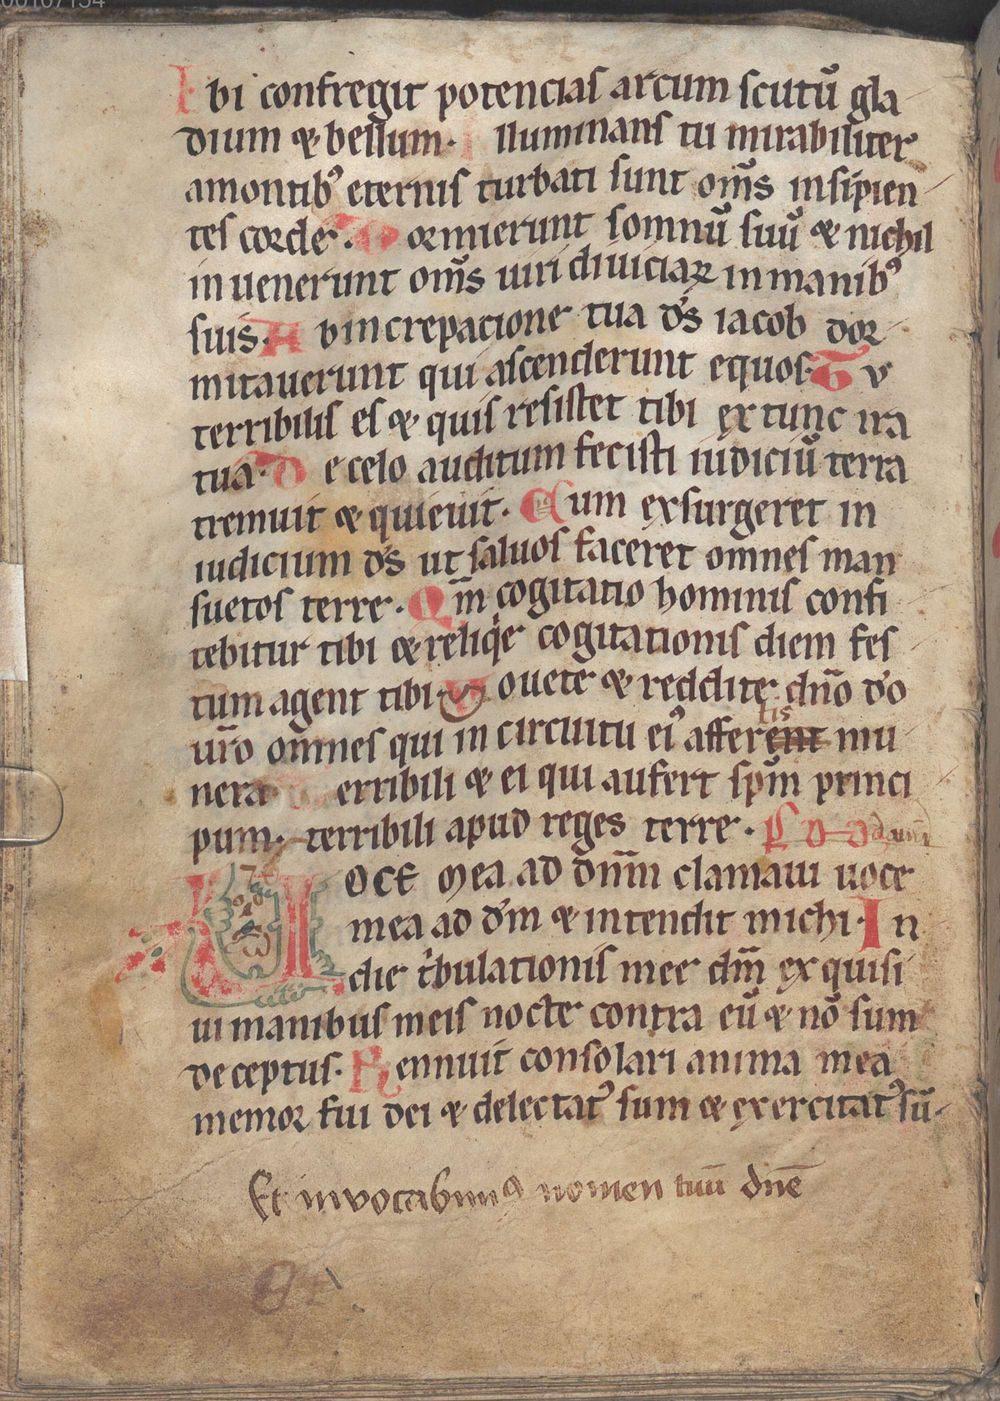 00107154
Ibi confregit potencias arcum scutū gla
dium & bellum. Illuminans tu mirabiliter
amontibꝰ eternis turbati sunt om̄s insipien
tes corde. Dormierunt somnū suū & nichil
inuenerunt om̄s uiri diuiciaꝝ inmanibꝰ
suis. Ab increpacione tua d̄s iacob dor
mitauerunt qui ascenderunt equos. Tv
terribilis es & quis resistet tibi ex tunc ira
tua. De celo auditum fecisti iudiciū terra
tremuit & quieuit. Cum exsurgeret in
iudicium d̄s ut saluos faceret omnes man
suetos terre. Qm̄ cogitatio hominis confi
tebitur tibi & reliq̄e cogitationis diem fes
tum agent tibi. Vouete & reddite dn̄o d̄o
ur̄o omnes qui in circuitu eiꝰ afferent tis mu
nera. Terribili & ei qui aufert sp̄m princi
pum. terribili apud reges terre.
VOCE mea ad dn̄m clamaui uoce
mea ad d̄m & intendit michi. In
die t'bulationis mee dm̄ exquisi
ui manibus meis nocte contra eū & nō sum
deceptus. Rennuit consolari anima mea
memor fui dei & delectatꝰ sum & exercitatꝰ sū
Et invocabimꝰ nomen tuū dn̄e